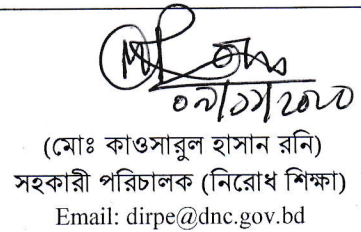 ০৯/১১/২০২০
(মোঃ কাওসারুল হাসান রনি)
সহকারী পরিচালক (নিরোধ শিক্ষা)
Email: dirpe@dnc.gov.bd